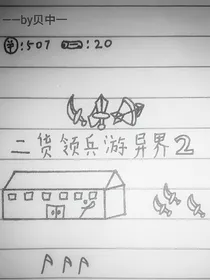 ——by贝中——
㊎:507 :20
二货领兵游异界2